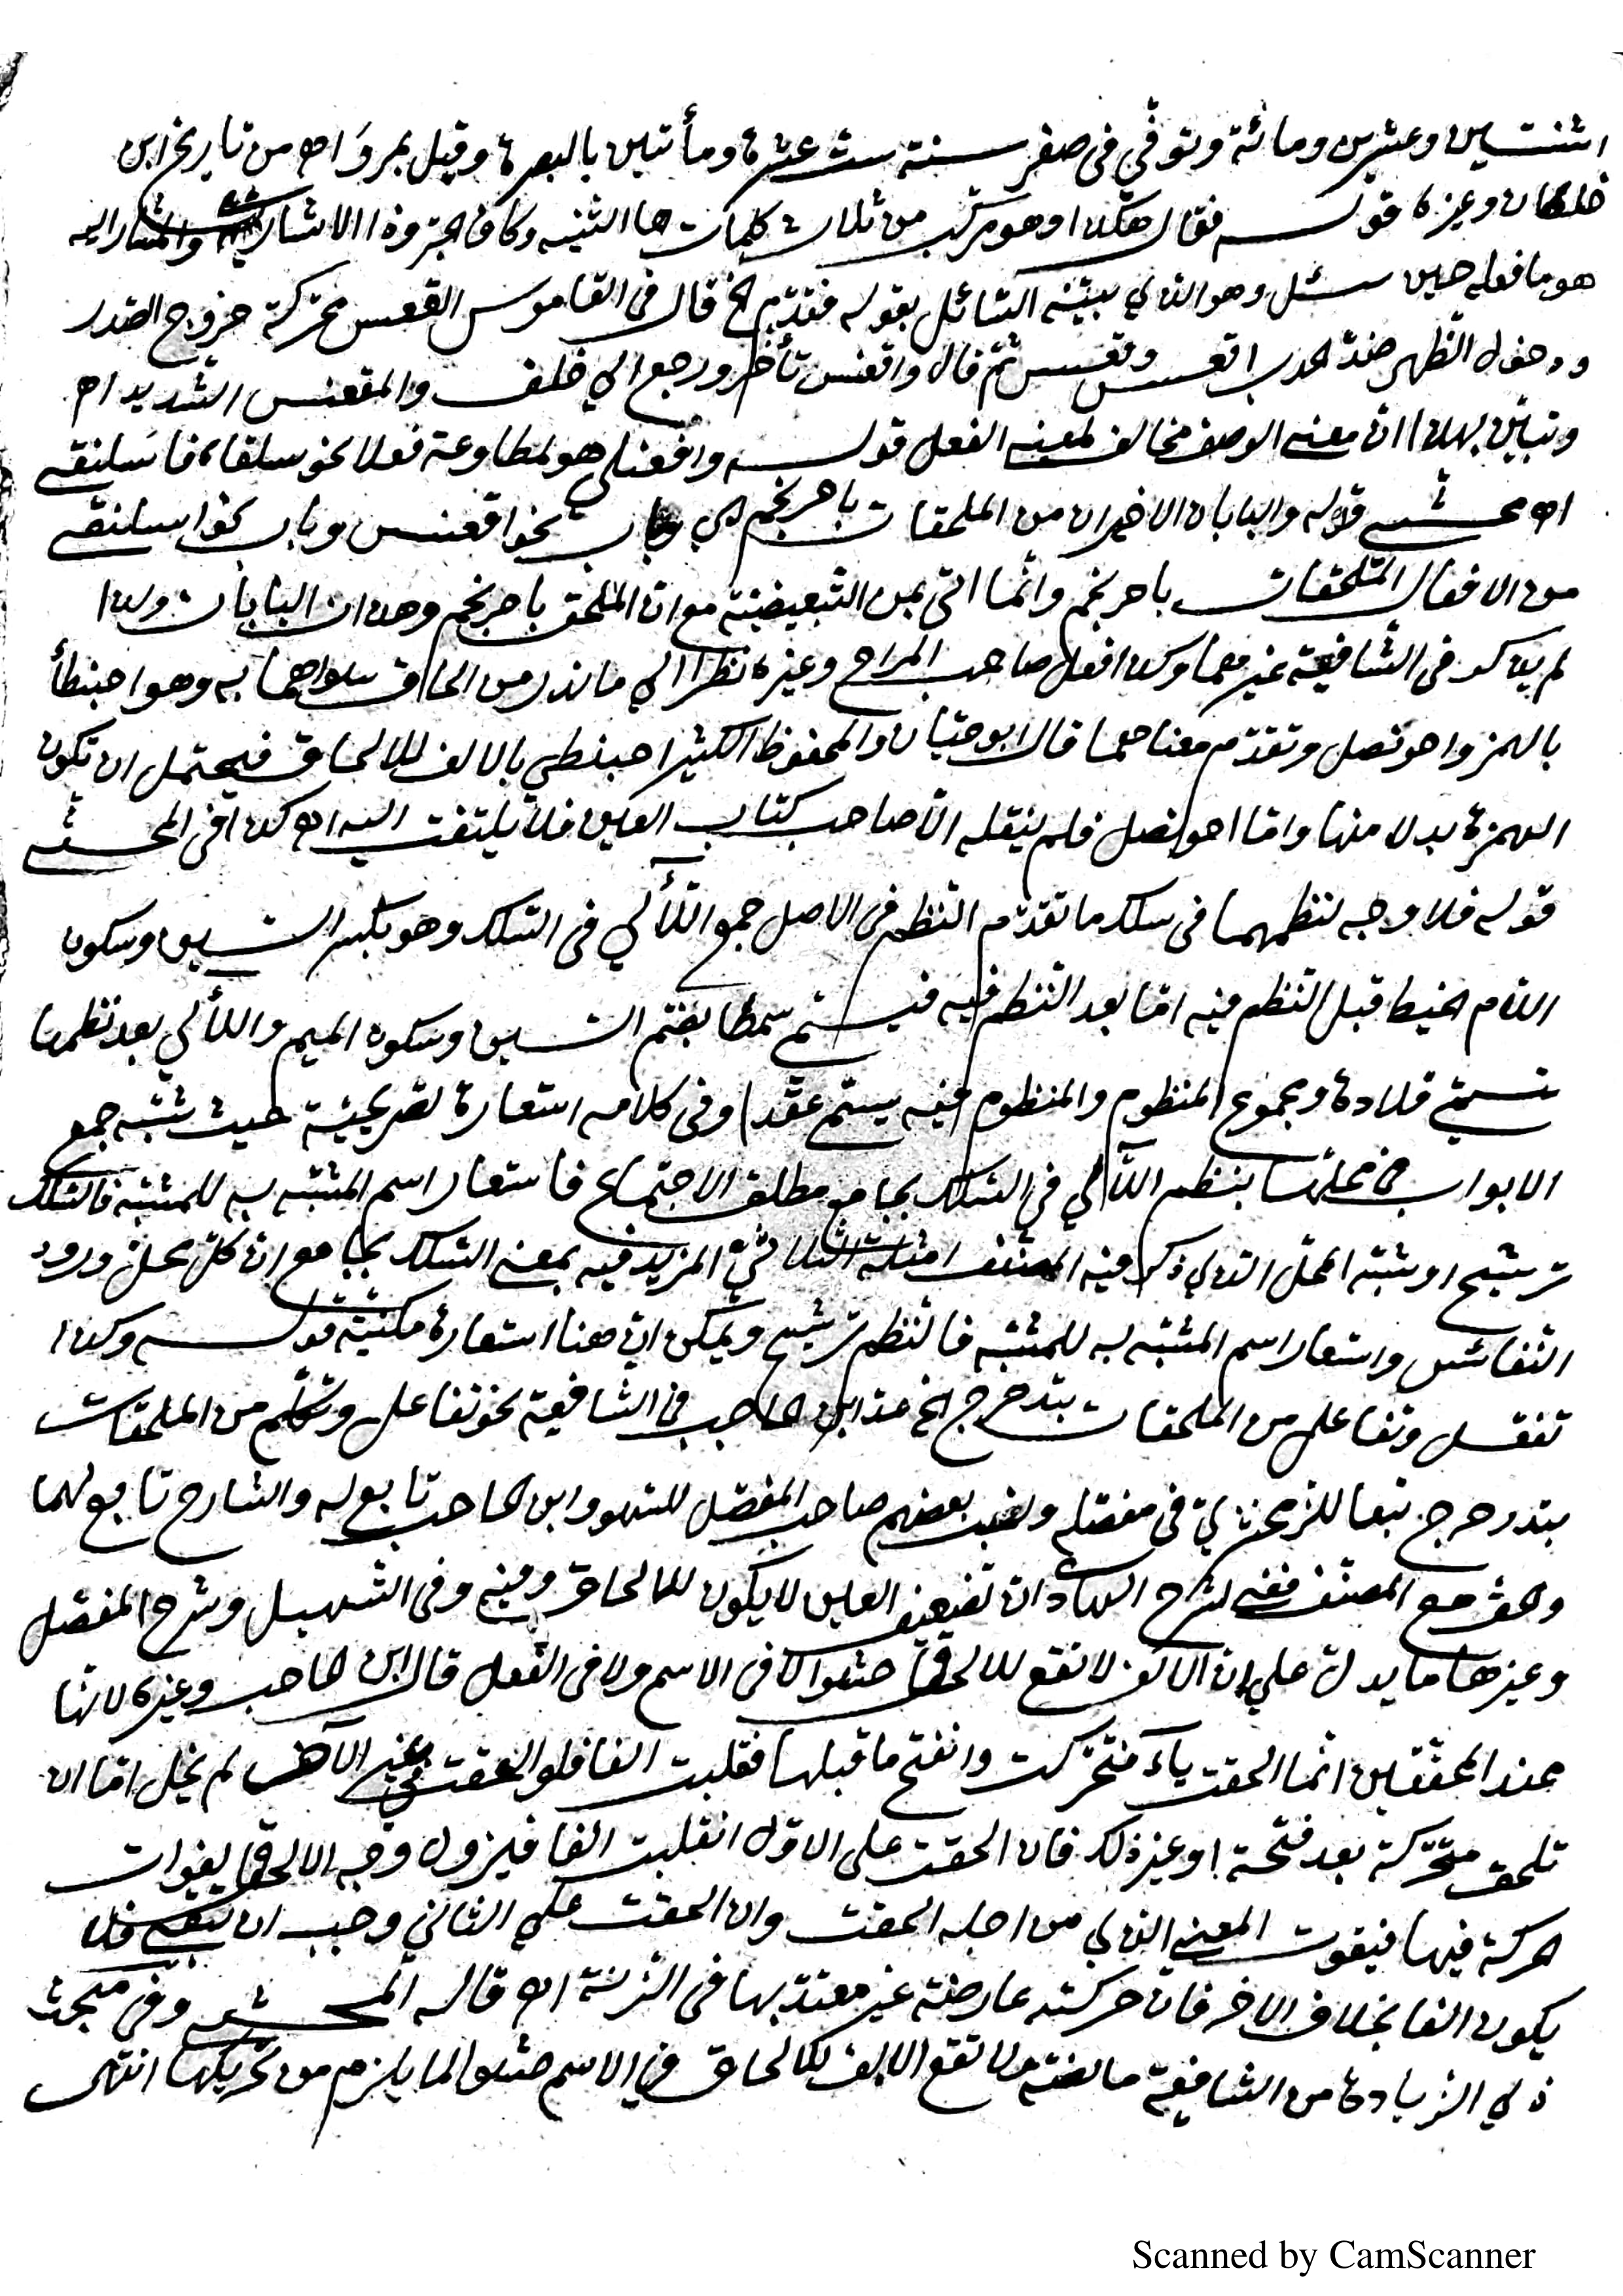 اثنتين وعشرين ومائة وتوفّي في صفر سنة ست عشرة ومأتين بالبصرة وقيل بمروَ اه من تاريخ ابن
خلكان وغيره قوله فقال هكذا وهو مركّب من ثلاث كلمات ها التنبيه وكاف الجرّ وذا الاشارية والمشار اليه
هو ما فعله حين سئل وهو الذي بيّنه السّائل بقوله فقدّم الخ قال في القاموس القعس محرّكة خروج الصّدر
ودخول الظّهر ضدّ الحدب اقعس وقعس ثمّ قال واقعنس تأخّر ورجع الي خلف والمقعنس الشّديد اه
وتبيّن بهذا انّ معنى الوصف مخالف لمعنى الفعل قوله وافعنلى هو لمطاوعة فعلا نحو سلقاه فاسَلنقى
اه محشّى قوله والبابان الاخيران من الملحقات باحرنجم اي باب نحو اقعنسس وباب نحو اسلنقى
من الافعال الملحقات باحرنجم وانّما اتى بمن التّبعيضيّة مع انّ الملحق باحرنجم وهذان البابان ولذا
لم يذكر في الشّافية غيرهما وكذا فعل صاحب المراح وغيره نظرا الي ما ندر من الحاق سواهما به وهو احبنطأ
بالهمز واحونصل وتقدّم معناهما قال ابو حيّان والمحفوظ الكثير احبنطي بالالف للالحاق فيحتمل ان تكون
الهمزة بدلا منها وامّا احونصل فلم ينقله الّا صاحب كتاب العين فلا يلتفت اليه اه كذا في المحشّى
قوله فلا وجه لنظمهما في سلك ما تقدّم النّظم في الاصل جمع اللّآلي في السّلك وهو بكسر السّين وسكون
اللّام الخيط قبل النّظم فيه امّا بعد النّظم فيه فيسمّى سمطا بفتح السّين وسكون الميم واللّآلي بعد نظمها
تسمّى قلادة ومجموع المنظوم والمنظوم فيه يسمّى عقدا وفي كلامه استعارة تصريحيّة حيث شبّه جمع
الابواب في محلّها بنظم اللّآلي في السّلك بجامع مطلق الاجتماع فاستعار اسم المشبّه به للمشبّه فالسّلك
ترشيح او شبّه المحلّ الّذي ذكر فيه المصنّف امثلة الثّلاثيّ المزيد فيه بمعنى السّلك بجامع انّ كلّا محلّ ورود
النّفائس واستعار اسم المشبّه به للمشبّه فالنّظم ترشيح ويمكن انّ هنا استعارة مكنيّة قوله وكذا
تفعّل وتفاعل من الملحقات بتدحرج الخ عدّ ابن الحاجب في الشّافية نحو تفاعل وتكلّم من الملحقات
بتدحرج تبعا للزّمخشريّ في مفصّله ونسب بعضهم صاحب المفصّل للسّهو وابن الحاجب تابع له والشارح تابع لهما
والحقّ مع المصنّف ففي شرح الهادي انّ تضعيف العين لا يكون للالحاق وفيه وفي التّسهيل وشرح المفصّل
وغيرها ما يدلّ على انّ الالف لا تقع للالحاق حشوا لا في الاسم ولا في الفعل قال ابن الحاجب وغيره لانّها
عند المحقّقين انّما الحقت ياءً فتحرّكت وانفتح ما قبلها فقلبت الفا فلو الحقت في غير الآخر لم يخل امّا ان
تلحق متحرّكة بعد فتحة او غير ذلك فان الحقت على الاوّل انقلبت الفا فيزول وجه الالحاق بفوات
الحركة فيها فيفوت المعنى الذي من اجله الحقت وان الحقت علي الثاني وجب ان تبقى فلا
يكون الفا بخلاف الاخر فانّ حركته عارضة غير معتدّ بها في الزّنة اه قاله المحشّى وفي مبحث
ذي الزّيادة من الشافية ما نصّه ولا تقع الالف للالحاق في الاسم حشوا لما يلزم من تحريكها انتهى
Scanned by CamScanner